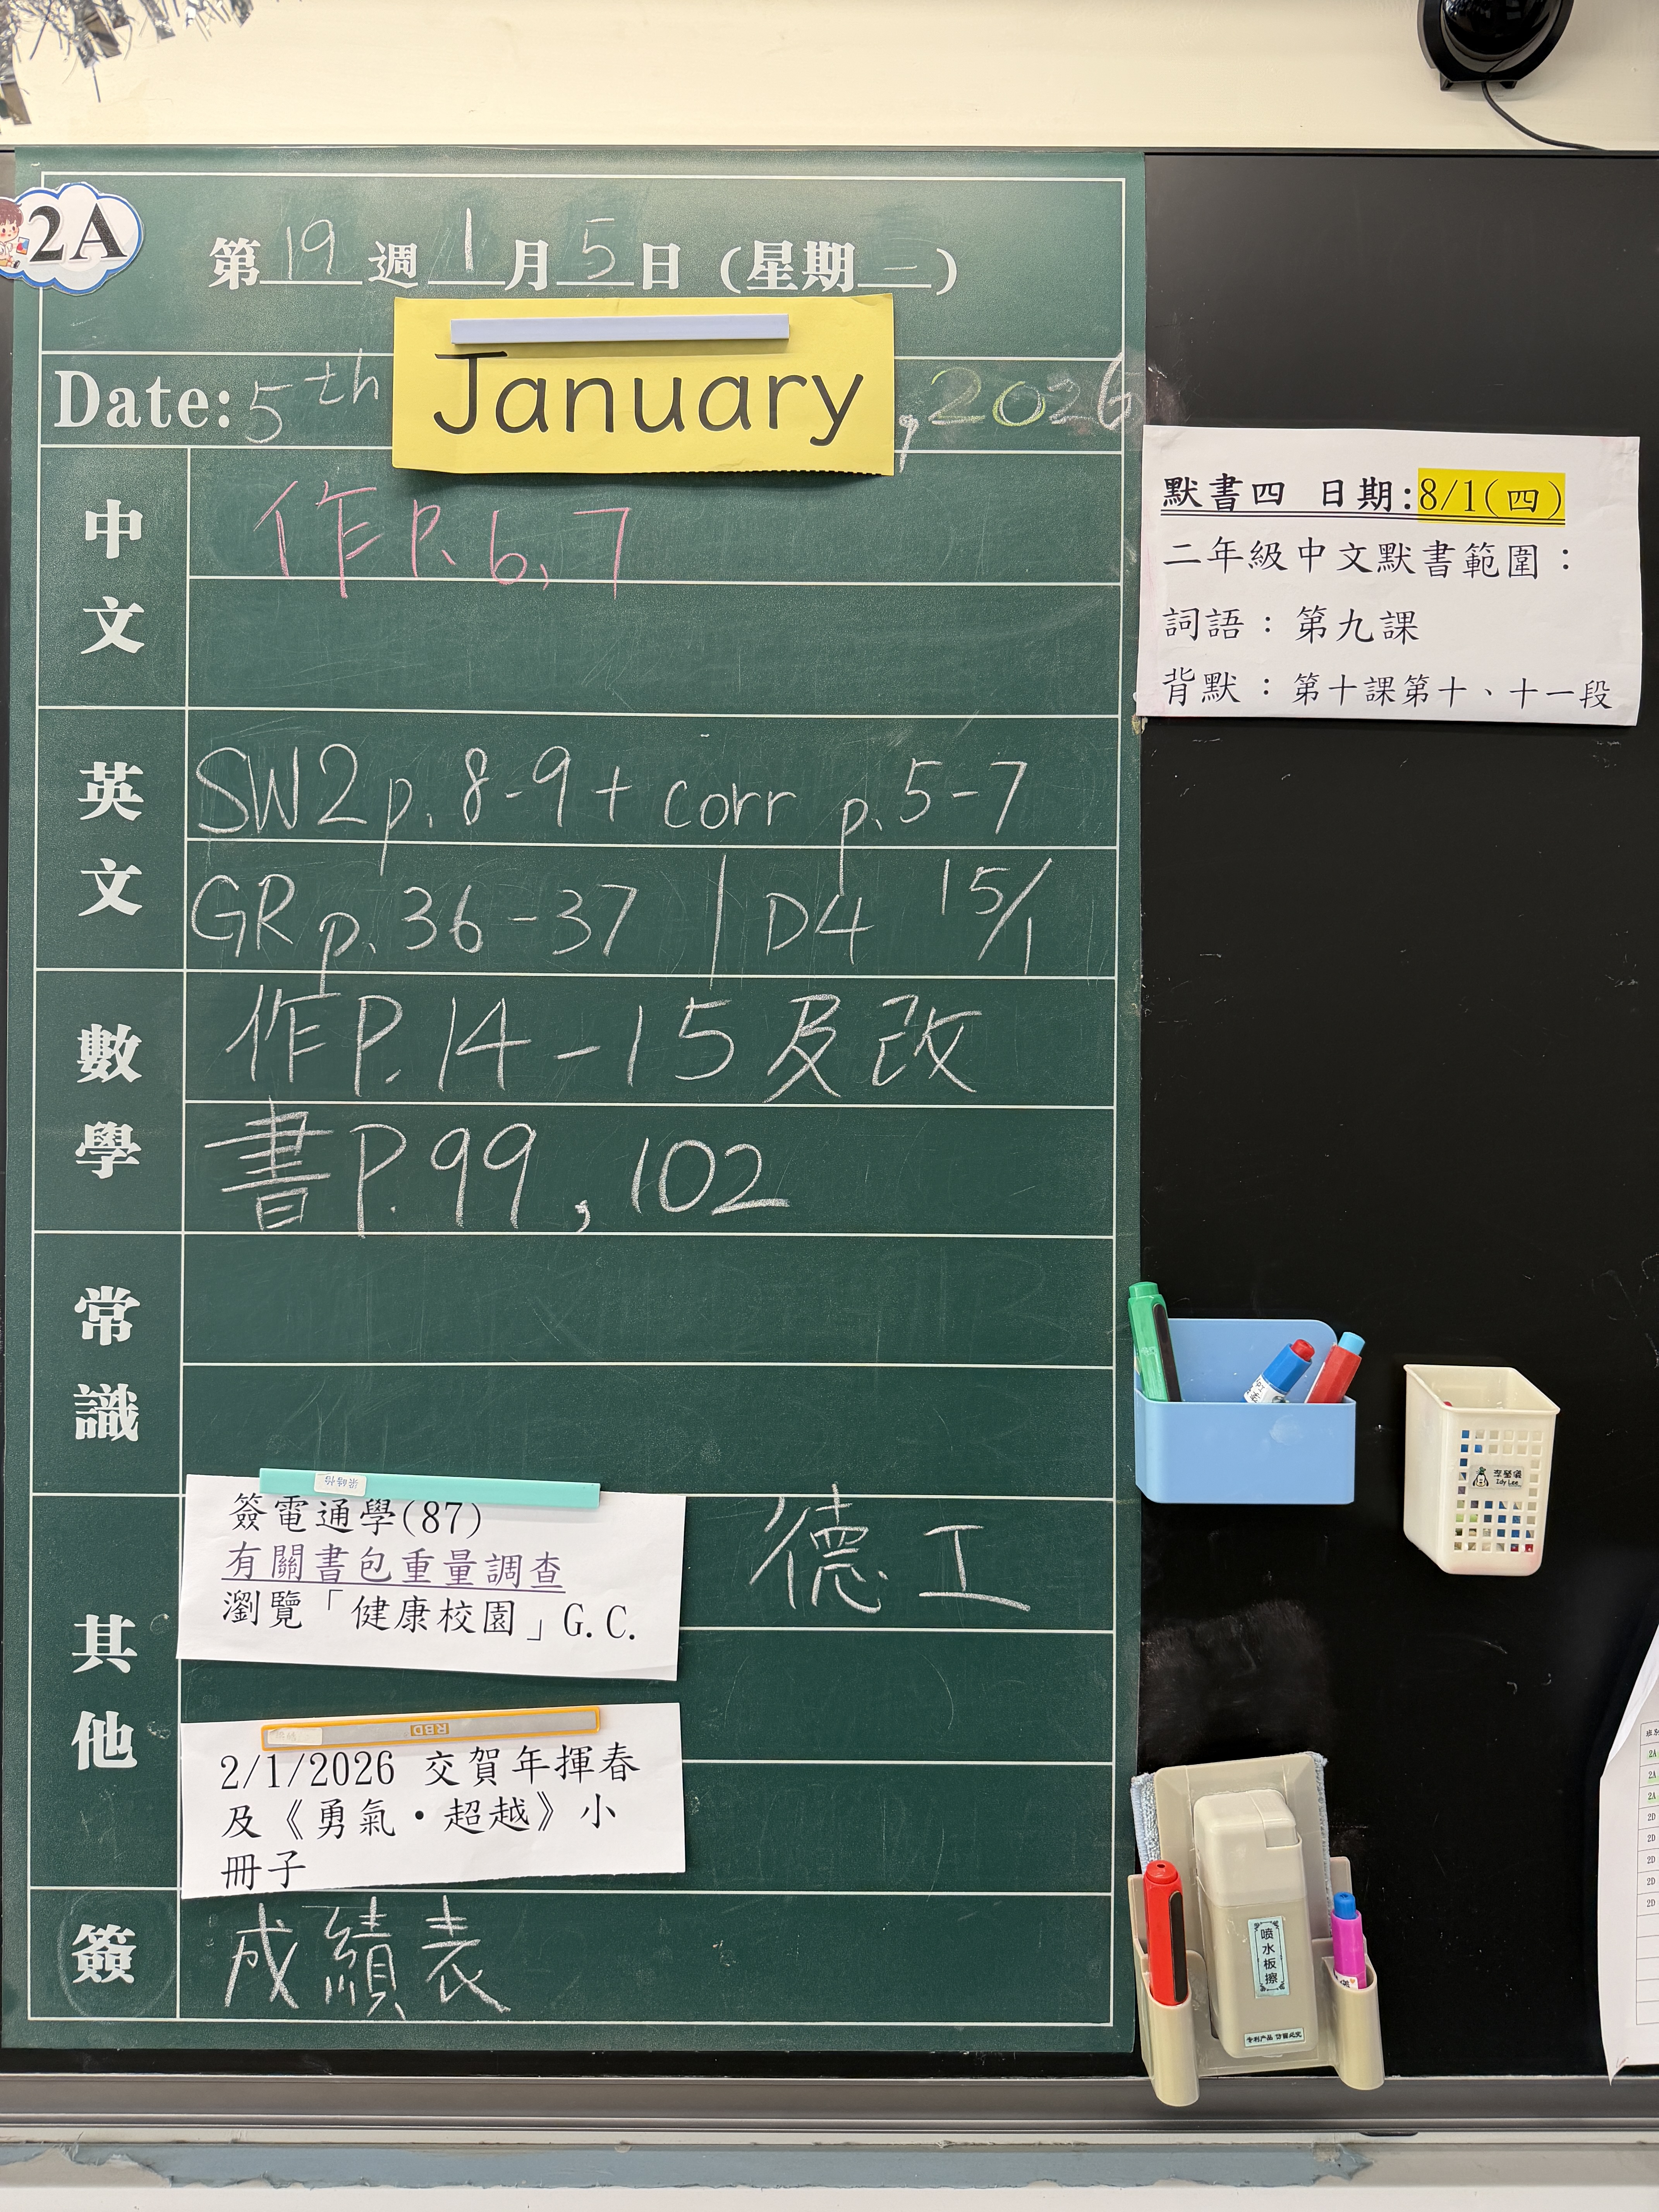 2A
第19週1月5日 (星期一)
Date: 5th January, 2026
中文
作P. 6, 7
英文
SW2 p. 8-9 + corr p. 5-7
GR p. 36-37 | D4 15/1
數學
作P. 14-15及改
書P. 99, 102
常識
其他
簽電通學(87)
有關書包重量調查
瀏覽「健康校園」G.C.
德工
RBD
2/1/2026 交賀年揮春
及《勇氣·超越》小
冊子
簽
成績表
默書四 日期:8/1(四)
二年級中文默書範圍：
詞語：第九課
背默：第十課第十、十一段
Idy Lee
喷水板擦
2A
2A
2A
2D
2D
2D
2D
2D